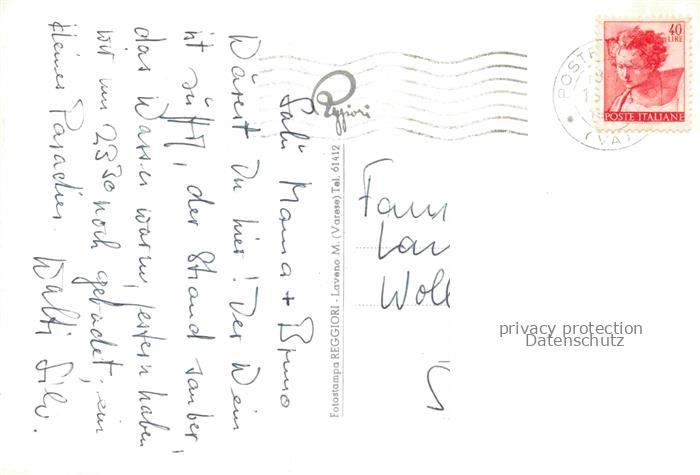 Salü Mama + Bruno
Wärest Du hier! Der Wein
ist süffig, der Strand sauber,
das Wasser warm, gestern haben
wir um 23³⁰ noch gebadet, ein
kleines Paradies. Walti Silv.
Reggiori
Fotostampa REGGIORI - Laveno M. (Varese) Tel. 61412
Fam
Lau
Woll
POSTE
(VA)
40
LIRE
POSTE ITALIANE
privacy protection
Datenschutz